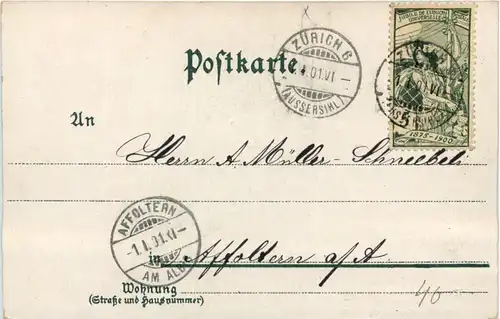 ZÜRICH 6
1.I.01.VI
(AUSSERSIHL)
Postkarte
JUBILÉ DE L'UNION
UNIVERSELLE
5
1875-1900
An
Herrn A. Müller-Schneebeli
AFFOLTERN
-1.I.01.XI-
AM ALBIS
in Affoltern a/A
Wohnung
(Straße und Hausnummer)
40